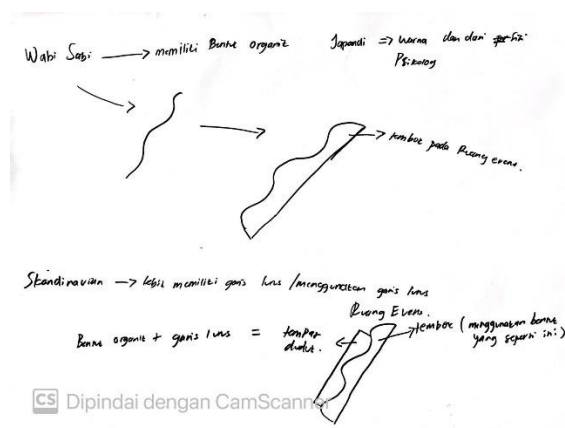 Wabi Sabi → memiliki Bentuk organik
Japandi => warna dan dari
Psikolog
→ tembok pada Ruang event.
Skandinavian → lebih memiliki garis lurus / menggunakan garis lurus
Bentuk organik + garis lurus = tempat
duduk.
Ruang Event.
tembok (menggunakan bentuk
yang seperti ini)
CS Dipindai dengan CamScanner